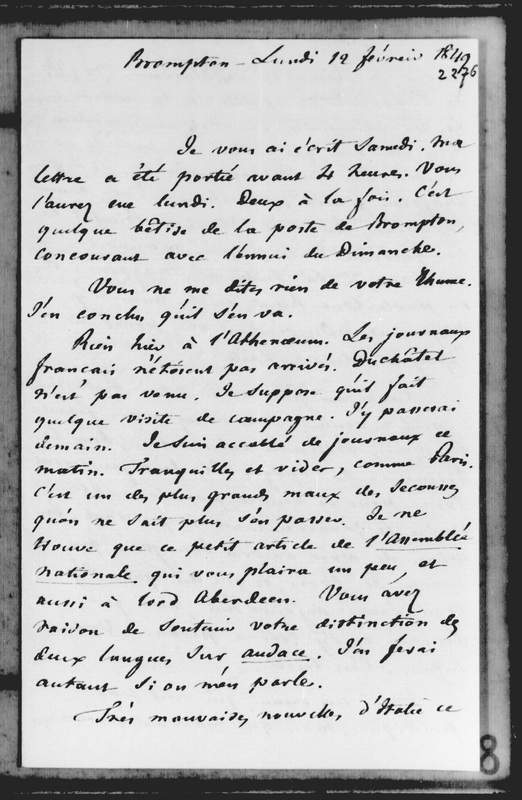 Brompton - Lundi 12 février 1849
2276
Je vous ai écrit Samedi. Ma
lettre a été portée avant 4 heures. Vous
l'aurez eue lundi. Deux à la fois. C'est
quelque bêtise de la poste de Brompton,
concourant avec l'ennui du Dimanche.
Vous ne me dites rien de votre rhume.
J'en conclus qu'il s'en va.
Rien hier à l'Athenaeum. Les journaux
français n'étoient pas arrivés. Duchâtel
n'est pas venu. Je suppose qu'il fait
quelque visite de campagne. J'y passerai
demain. Je suis accablé de journaux ce
matin. Tranquilles et vides, comme Paris.
C'est un des plus grands maux des secousses
qu'on ne sait plus s'en passer. Je ne
trouve que ce petit article de l'Assemblée
nationale qui vous plaira un peu, et
aussi à lord Aberdeen. Vous avez
raison de soutenir votre distinction des
deux langues sur audace. J'en ferai
autant si on m'en parle.
Très mauvaises nouvelles d'Italie ce
8